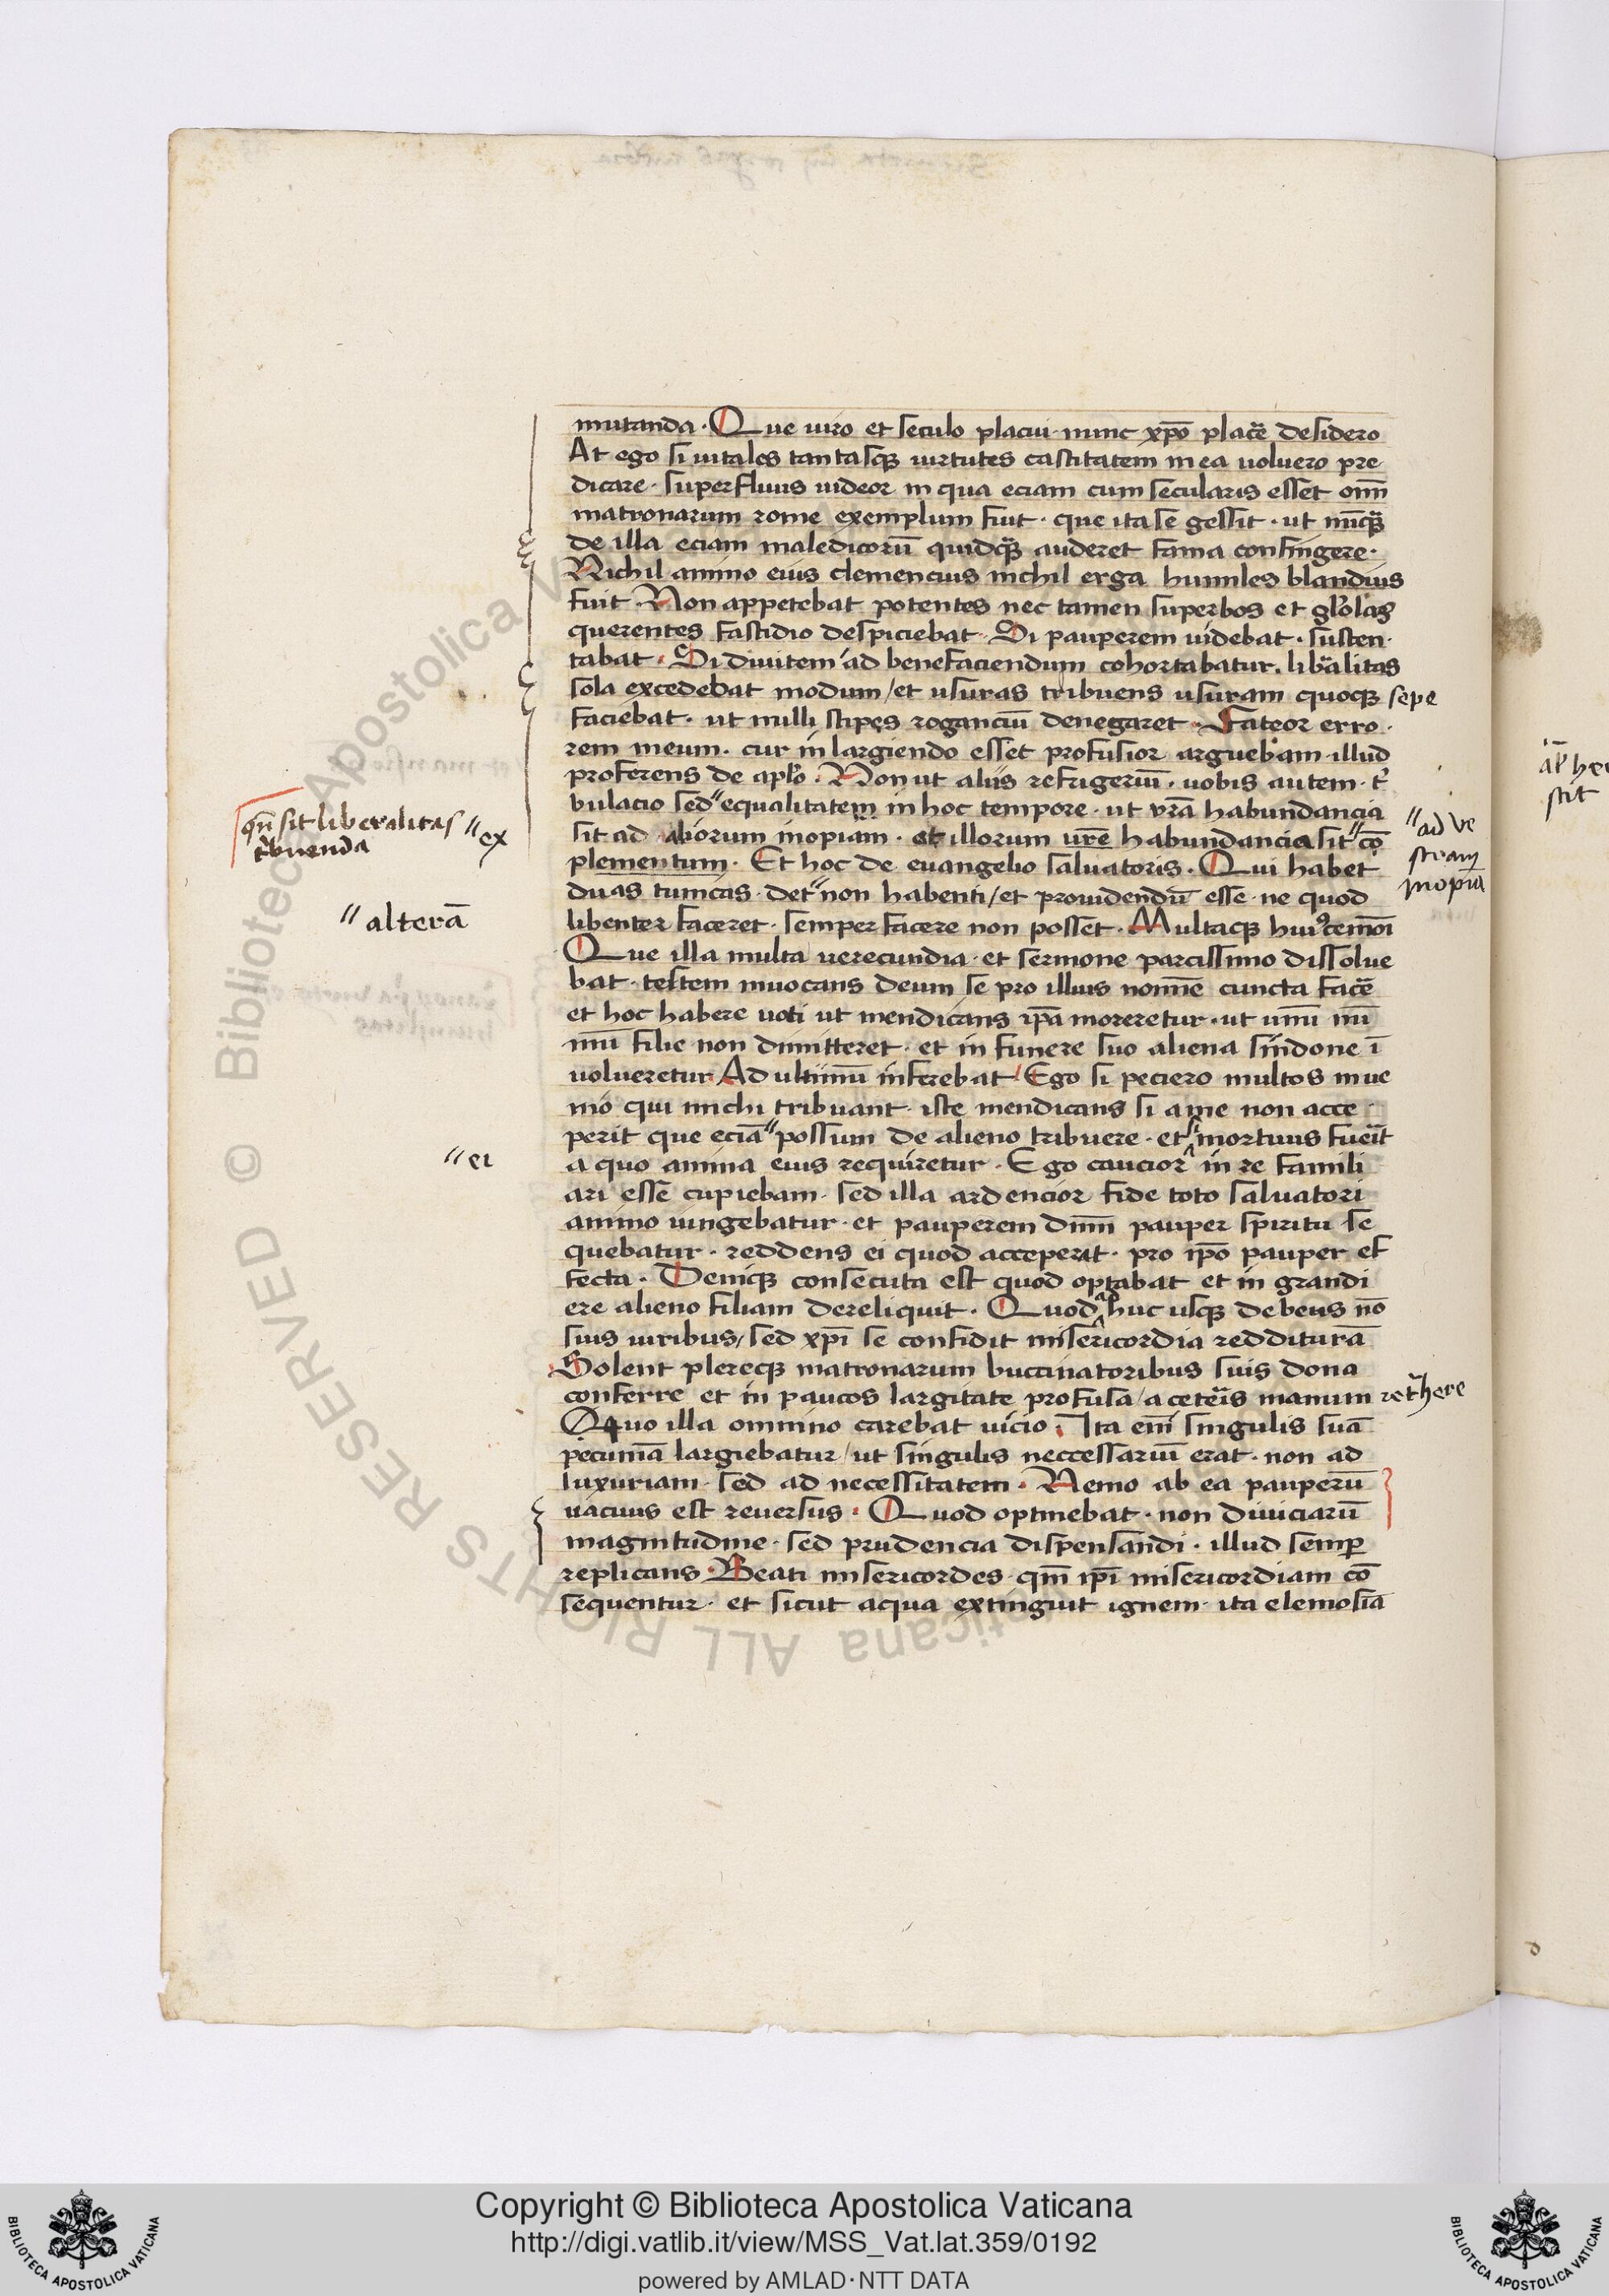 mutanda · Que uiro et seculo placui · nunc xpō placē desidero
At ego si uitales tantasqȝ uirtutes castitatem in ea uoluero pre
dicare · superfluus uideor in qua eciam cum secularis esset om̄
matronarum rome exemplum fuit · que ita se gessit · ut nūcqȝ
de illa eciam maledicorū quidqȝ auderet fama confingere ·
Nichil animo eius clemencius nichil erga humiles blandius
fuit · Non appetebat potentes nec tamen superbos et gl'olas
querentes fastidio despiciebat · Si pauperem uidebat · susten
tabat · Si diuitem ad benefaciendum cohortabatur · lib'alitas
sola excedebat modum / et usuras tribuens usuram quoqȝ sepe
faciebat · ut nulli stipes roganciū denegaret · Fateor erro
rem meum · cur in largiendo esset profusior arguebam · illud
proferens de aplo · Non ut aliis refugeriū · uobis autem · t'
bulacio sed " equalitatem in hoc tempore · ut vrā habundancia
sit ad aliorum inopiam · et illorum vrē habundancia sit " cō
plementum · Et hoc de euangelio saluatoris · Qui habet
duas tunicas · det " non habenti / et prouidendū esse · ne quod
libenter faceret · semper facere non posset · Multaqȝ hui9cemōi
Que illa multa uerecundia · et sermone parcissimo dissolue
bat · testem inuocans deum se pro illius nomīe cuncta facē
et hoc habere uoti ut mendicans ipā moreretur · ut unū nū
mū filie non dimitteret · et in funere suo aliena sindone ī
uolueretur Ad ultimū inferebat / Ego si peciero multos inue
nio qui michi tribuant · iste mendicans si a me non acce
perit que eciā " possum de alieno tribuere · et mortuus fuerit
a quo anima eius requiretur · Ego caucior in re famili
ari esse cupiebam · sed illa ardencior fide toto saluatori
animo iungebatur · et pauperem dnm̄ pauper spiritu se
quebatur · reddens ei quod acceperat · pro ipō pauper ef
fecta · Deniqȝ consecuta est quod optabat et in grandi
ere alieno filiam dereliquit · Quod huc usqȝ debens nō
suis uiribus / sed xpī se confidit misericordia redditurā
Solent plereqȝ matronarum buccinatoribus suis dona
conferre et in paucos largitate profusa / a ceteris manum ret'here
Quo illa omnino carebat uicio · Ita em̄ singulis suā
pecuniā largiebatur / ut singulis neccessariū erat · non ad
luxuriam · sed ad necessitatem · Nemo ab ea pauperū
uacuus est reuersus · Quod optinebat · non diuiciarū
magnitudine · sed prudencia dispensandi · illud semp
replicans · Beati misericordes · qm̄ ipī misericordiam cō
sequentur · et sicut aqua extinguit ignem · ita elemosīa
qn̄ sit liberalitas
t'buenda
" ex
" alterā
" ei
" ad ve
stram
inopiā
stit
Copyright © Biblioteca Apostolica Vaticana
http://digi.vatlib.it/view/MSS_Vat.lat.359/0192
powered by AMLAD·NTT DATA
BIBLIOTECA APOSTOLICA VATICANA
BIBLIOTECA APOSTOLICA VATICANA
Biblioteca Apostolica Vaticana ALL RIGHTS RESERVED ©